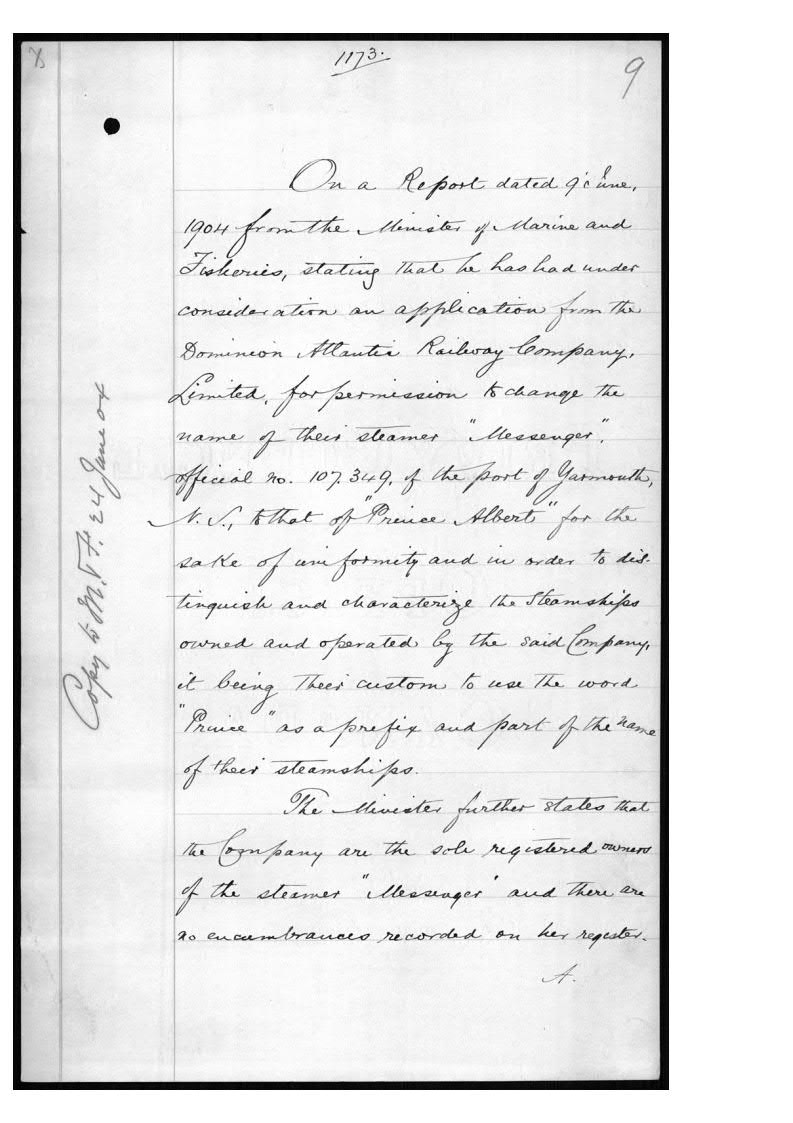 1173.
9
On a Report dated 9th June,
1904 from the Minister of Marine and
Fisheries, stating that he has had under
consideration an application from the
Dominion Atlantic Railway Company,
Limited, for permission to change the
name of their steamer "Messenger",
official no. 107.349, of the port of Yarmouth,
N.S., to that of "Prince Albert" for the
sake of uniformity and in order to dis-
tinguish and characterize the Steamships
owned and operated by the said Company,
it being their custom to use the word
"Prince" as a prefix and part of the name
of their steamships.
The Minister further states that
the Company are the sole registered owners
of the steamer "Messenger" and there are
no encumbrances recorded on her register.
A.
Copy to M. & F. 24 June 04